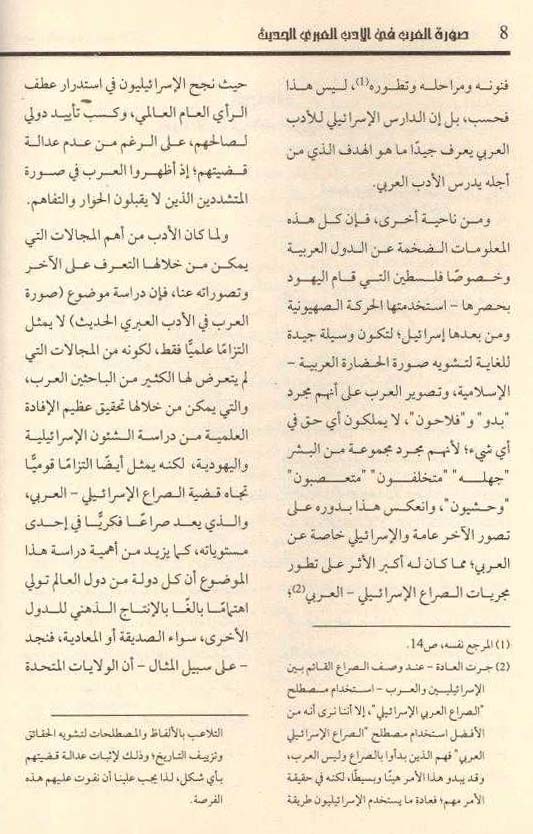 8 صورة العرب في الأدب العبري الحديث
فنونه ومراحله وتطوره(1)، ليس هذا
فحسب، بل إن الدارس الإسرائيلي للأدب
العربي يعرف جيدًا ما هو الهدف الذي من
أجله يدرس الأدب العربي.
ومن ناحية أخرى، فإن كل هذه
المعلومات الضخمة عن الدول العربية
وخصوصًا فلسطين التي قام اليهود
بحصرها – استخدمتها الحركة الصهيونية
ومن بعدها إسرائيل؛ لتكون وسيلة جيدة
للغاية لتشويه صورة الحضارة العربية –
الإسلامية، وتصوير العرب على أنهم مجرد
"بدو" و"فلاحون"، لا يملكون أي حق في
أي شيء؛ لأنهم مجرد مجموعة من البشر
"جهله" "متخلفون" "متعصبون"
"وحشيون"، وانعكس هذا بدوره على
تصور الآخر عامة والإسرائيلي خاصة عن
العربي؛ مما كان له أكبر الأثر على تطور
مجريات الصراع الإسرائيلي – العربي(2)؛
(1) المرجع نفسه، ص14.
(2) جرت العادة – عند وصف الصراع القائم بين
الإسرائيليين والعرب – استخدام مصطلح
"الصراع العربي الإسرائيلي"، إلا أننا نرى أنه من
الأفضل استخدام مصطلح "الصراع الإسرائيلي
العربي" فهم الذين بدأوا بالصراع وليس العرب،
وقد يبدو هذا الأمر هينًا وبسيطًا، لكنه في حقيقة
الأمر مهم؛ فعادة ما يستخدم الإسرائيليون طريقة
حيث نجح الإسرائيليون في استدرار عطف
الرأي العام العالمي، وكسب تأييد دولي
لصالحهم، على الرغم من عدم عدالة
قضيتهم؛ إذ أظهروا العرب في صورة
المتشددين الذين لا يقبلون الحوار والتفاهم.
ولما كان الأدب من أهم المجالات التي
يمكن من خلالها التعرف على الآخر
وتصوراته عنا، فإن دراسة موضوع (صورة
العرب في الأدب العبري الحديث) لا يمثل
التزامًا علميًّا فقط، لكونه من المجالات التي
لم يتعرض لها الكثير من الباحثين العرب،
والتي يمكن من خلالها تحقيق عظيم الإفادة
العلمية من دراسة الشئون الإسرائيلية
واليهودية، لكنه يمثل أيضًا التزامًا قوميًّا
تجاه قضية الصراع الإسرائيلي – العربي،
والذي يعد صراعًا فكريًّا في إحدى
مستوياته، كما يزيد من أهمية دراسة هذا
الموضوع أن كل دولة من دول العالم تولي
اهتمامًا بالغًا بالإنتاج الذهني للدول
الأخرى، سواء الصديقة أو المعادية، فنجد
– على سبيل المثال – أن الولايات المتحدة
التلاعب بالألفاظ والمصطلحات لتشويه الحقائق
وتزييف التاريخ؛ وذلك لإثبات عدالة قضيتهم
بأي شكل، لذا يجب علينا أن نفوت عليهم هذه
الفرصة.